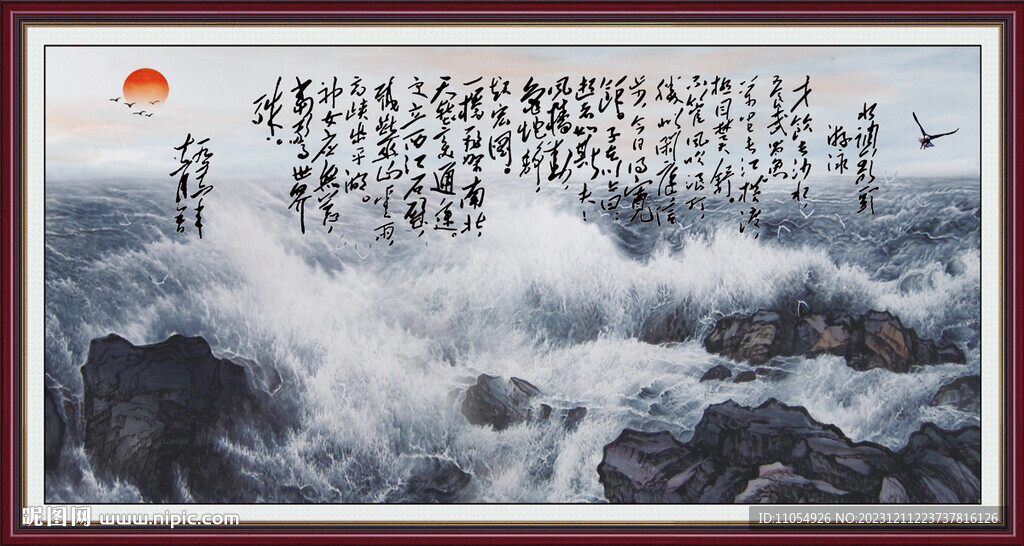 水调歌头
游泳
才饮长沙水，
又食武昌鱼。
万里长江横渡，
极目楚天舒。
不管风吹浪打，
胜似闲庭信
步，今日得宽
馀。子在川上曰：
逝者如斯夫！
风樯动，
龟蛇静，
起宏图。
一桥飞架南北，
天堑变通途。
更立西江石壁，
截断巫山云雨，
高峡出平湖。
神女应无恙，
当惊世界
殊。
昵图网 www.nipic.com
ID:11054926 NO:20231211223737816126